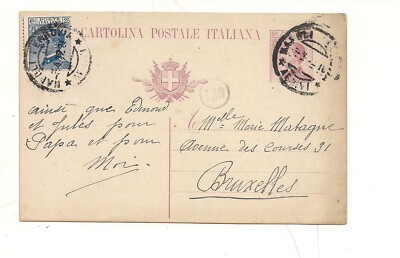 CARTOLINA POSTALE ITALIANA
NAPOLI
139
ainsi que Edmond
et Jules pour
Papa et pour
Moi.
Mlle Marie Matagne
Avenue des Courses 31
Bruxelles